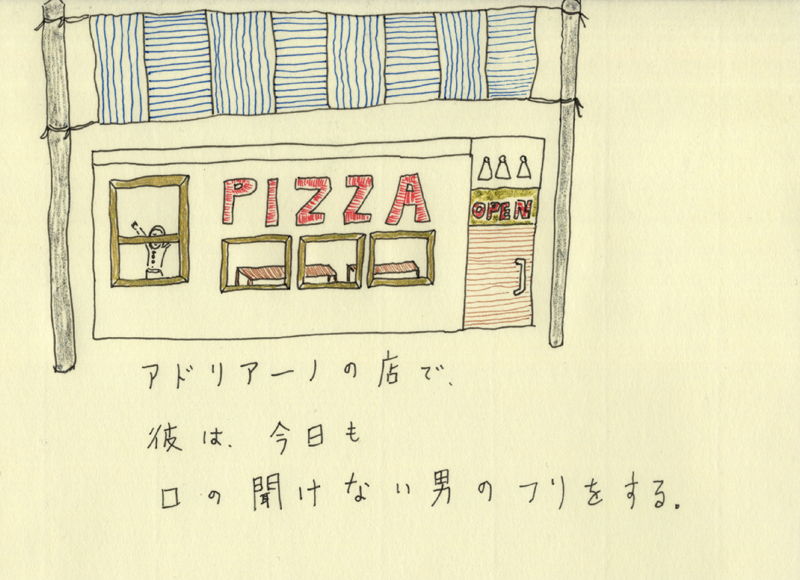 PIZZA
OPEN
アドリアーノの店で、
彼は、今日も
口の聞けない男のフリをする。